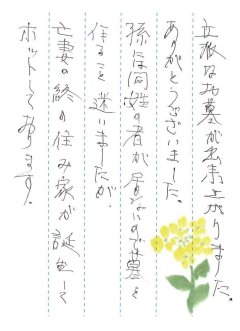 立派なお墓が出来上がりました。
ありがとうございました。
孫には同姓の者が居ないので墓を
作ること迷いましたが、
亡妻の終の住み家が誕生して
ホットしております。